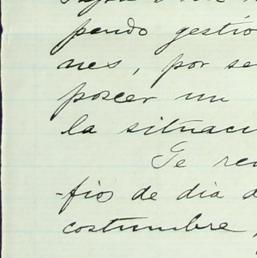 pendo gestio
nes, por se
poseer un
la situaci
Te re
-fios de dia d
costumbre,